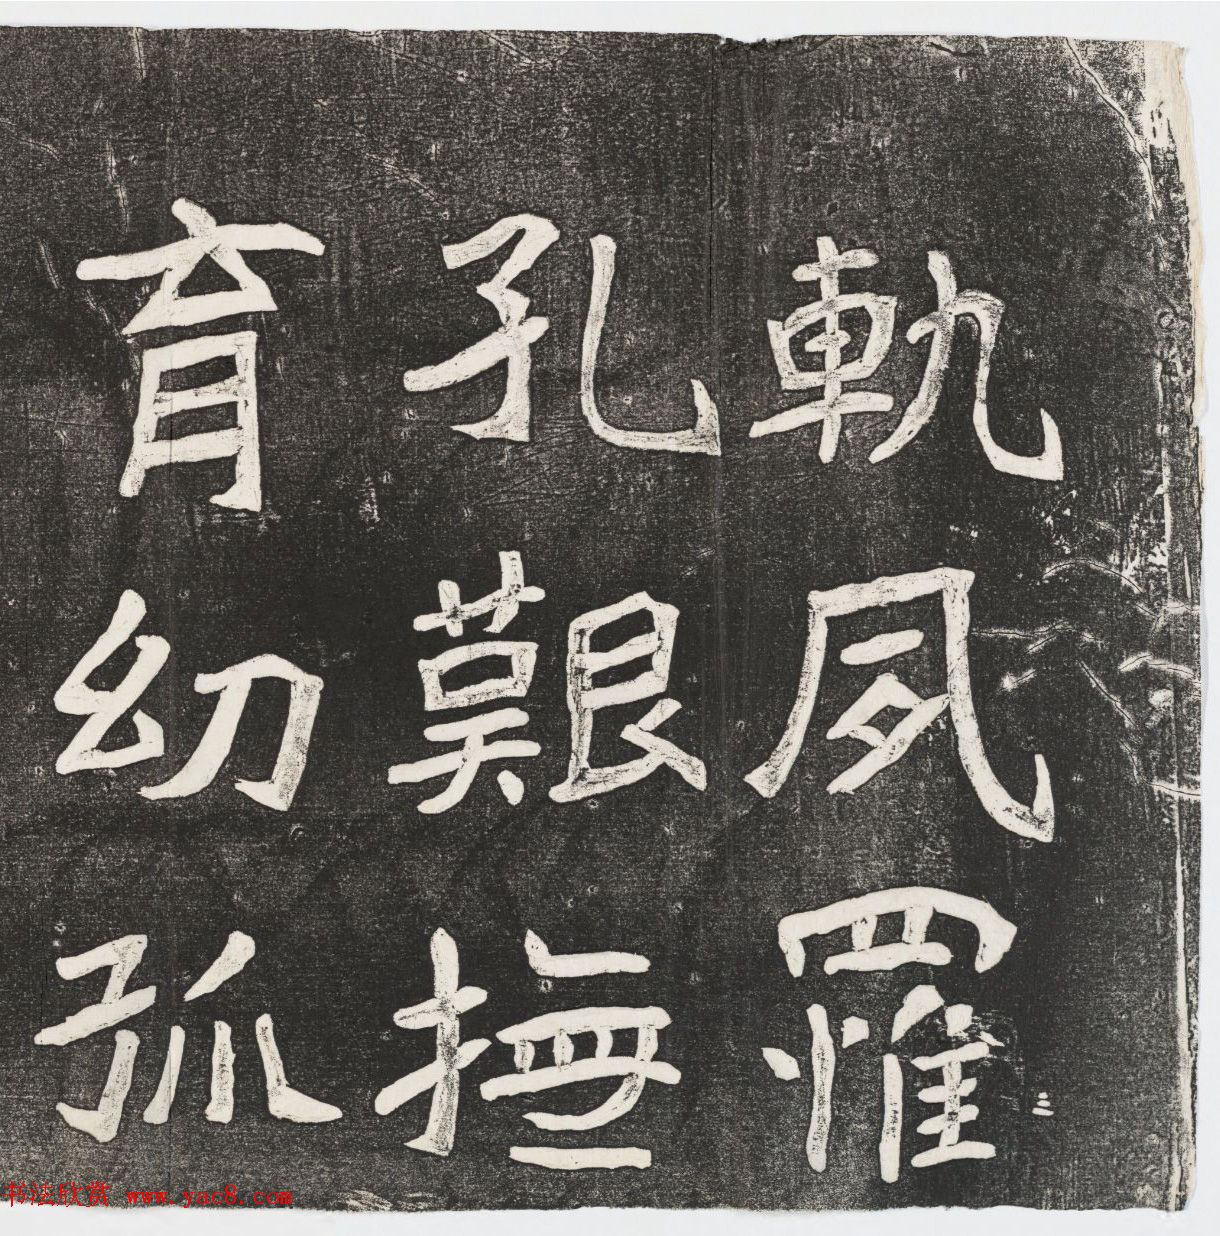 軌夙罹
孔艱撫
育幼孤
书法欣赏 www.yac8.com